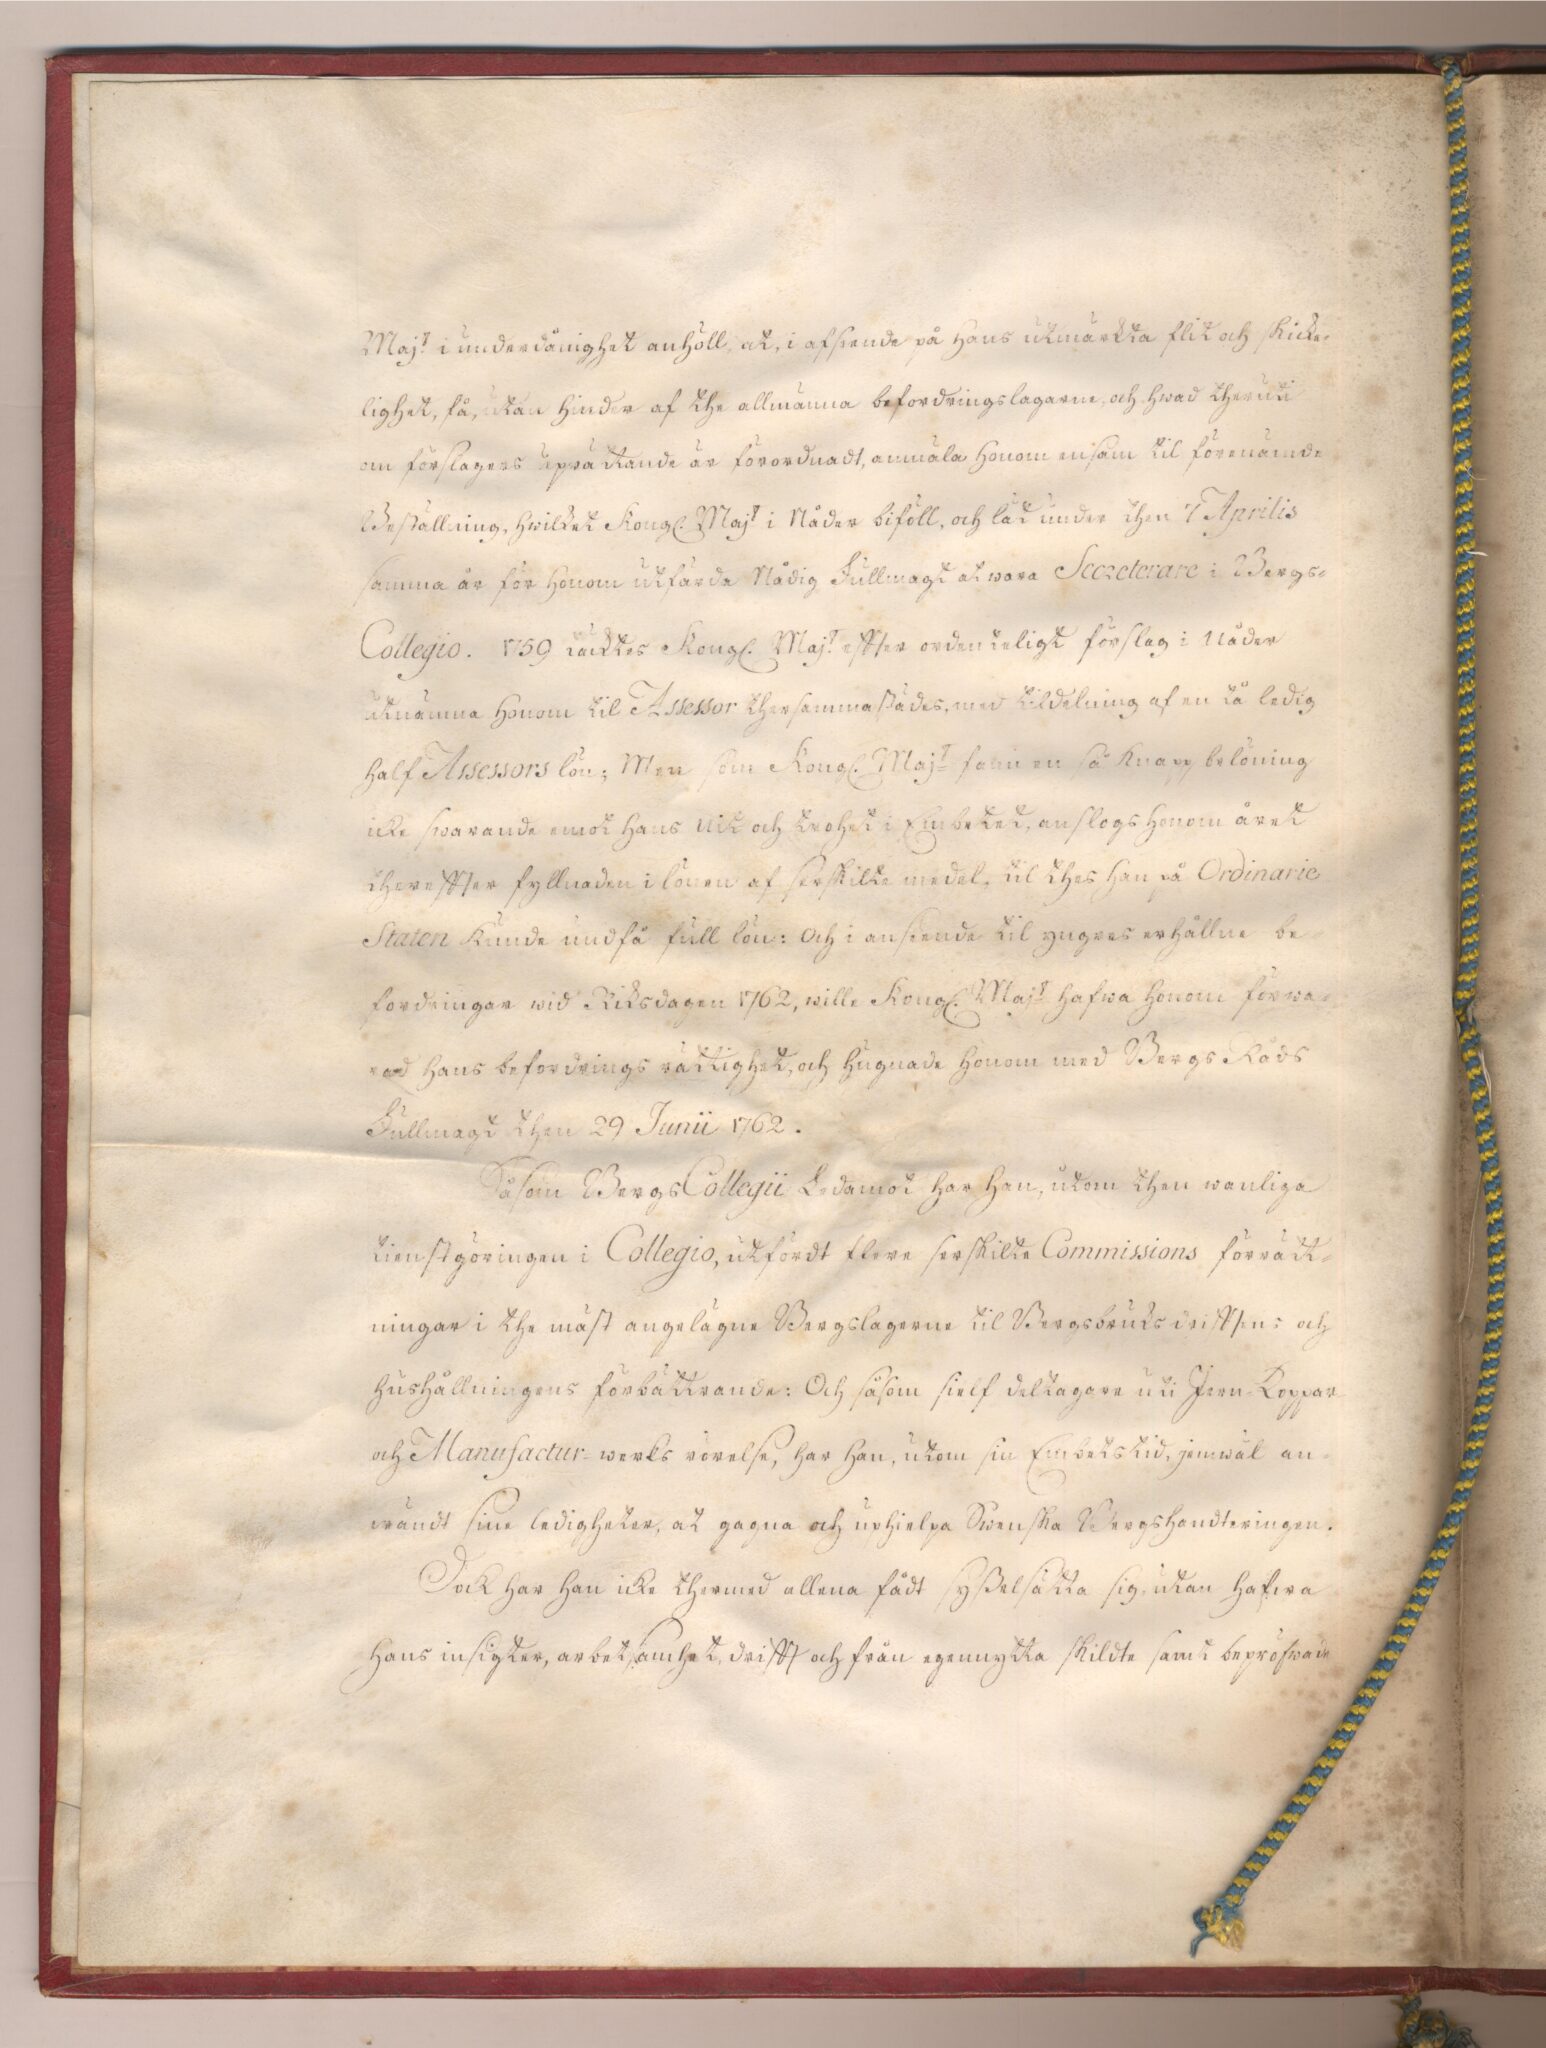 Maj:t i underdånighet anhöll, at, i afseende på Hans utmärkta flit och skicke-
lighet, få, utan hinder af the allmänna befordringslagarne, och hwad theruti
om förslagers uprättande är förordnadt, anmäla Honom ensam til förenämde
Beställning, hwilket Kongl. Maj:t i Nåder biföll, och lät under then 7 Aprilis
samma år för Honom utfärda Nådig Fullmagt at wara Secreterare i Bergs-
Collegio. 1759 täcktes Kongl. Maj:t effter ordenteligt förslag i Nåder
utnämna Honom til Assessor thersammastädes, med tildelning af en tå ledig
half Assessors lön; Men som Kongl. Maj:t fann en så knapp belöning
icke swarande emot Hans nit och trohet i Embetet, anslogs Honom året
therefter fyllnaden i lönen af serskilte medel, til thes Han på Ordinarie
Staten kunde undfå full lön: Och i anseende til yngres erhållne be-
fordringar wid Riksdagen 1762, wille Kongl. Maj:t hafwa Honom förwa-
rad Hans befordrings rättighet, och hugnade Honom med Bergs Råds
Fullmagt then 29 Junii 1762.
Såsom Bergs Collegii Ledamot har Han, utom then wanliga
tienstgöringen i Collegio, utfördt flere serskilte Commissions förrätt-
ningar i the mäst angelägne Bergslagerne til Bergsbruks drifftens och
Hushållningens förbättrande: Och såsom sielf deltagare uti Jern- Koppar
och Manufactur-werks rörelse, har Han, utom sin Embetstid, jemwäl an-
wändt sine ledigheter, at gagna och uphielpa Swenska Bergshandteringen.
Dock har Han icke thermed allena fådt sysselsätta sig, utan hafwa
Hans insigter, arbetsamhet, drifft och från egennytta skildte samt bepröfwade